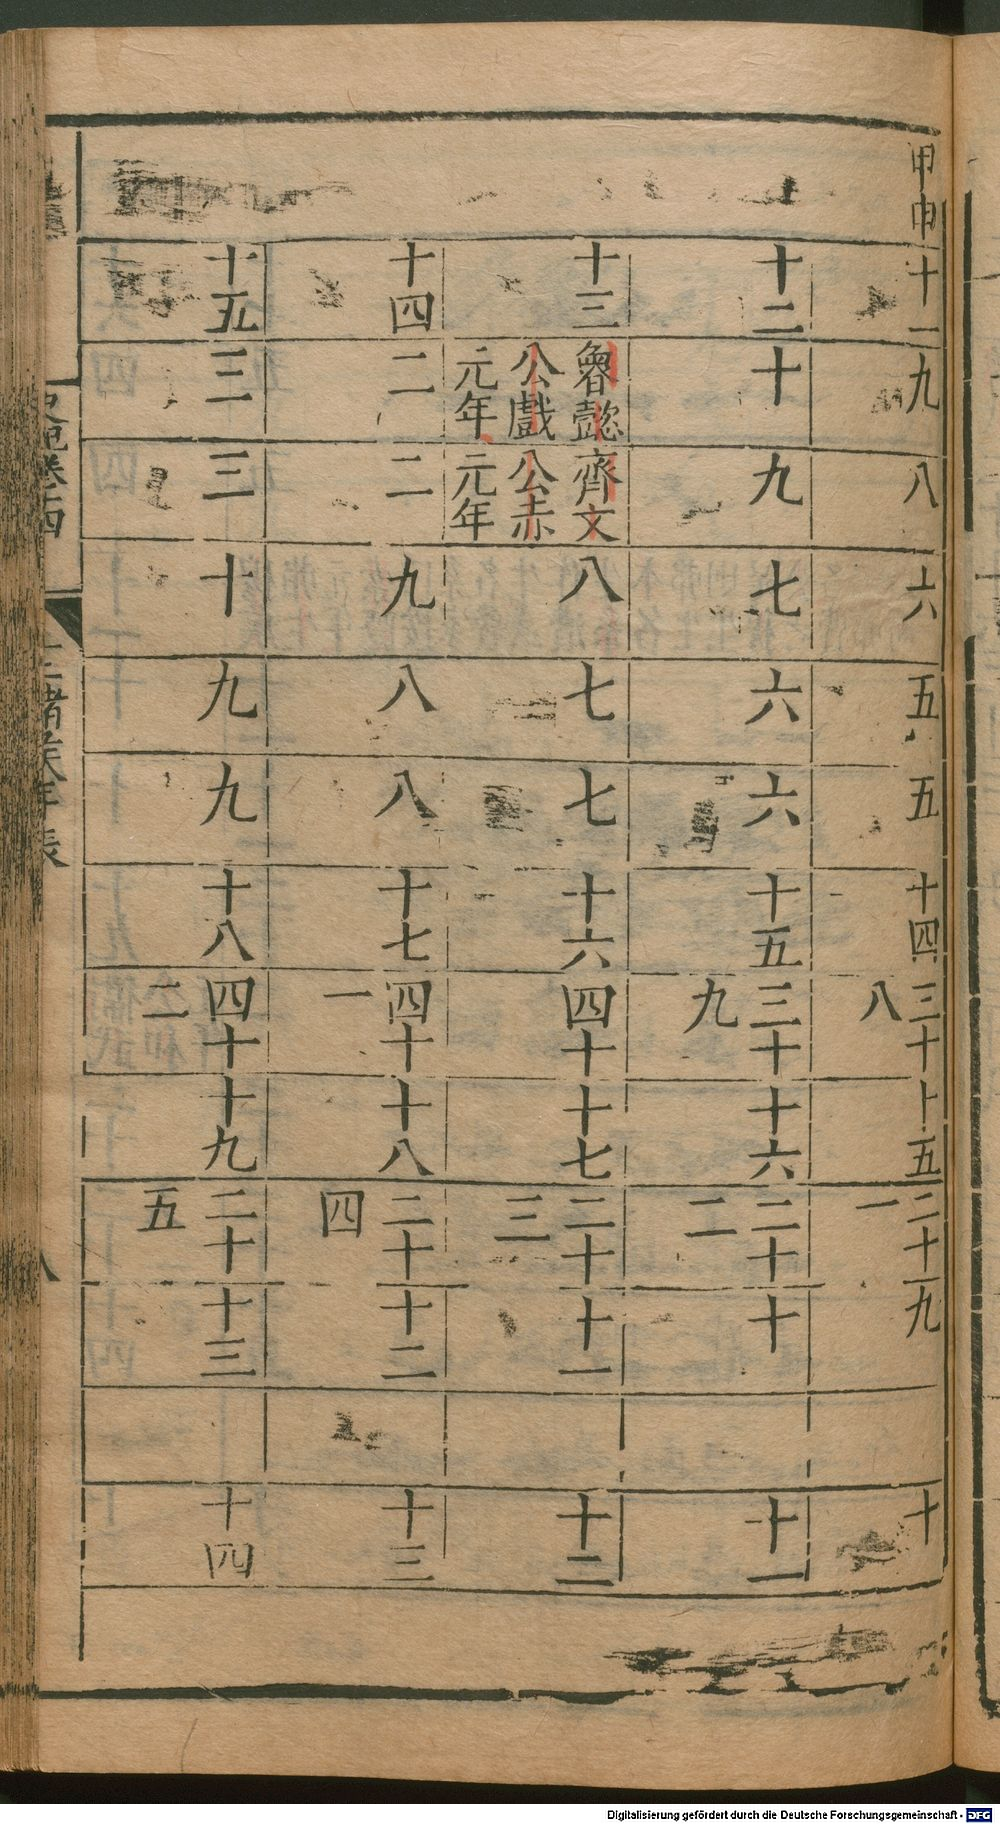 甲申
十一
九
八
六
五
五
十四
三十八
十五
二十一
九
十
十二
十
九
七
六
六
十五
三十九
十六
二十二
十
十一
十三
魯懿公戲元年
齊文公赤元年
八
七
七
十六
四十
十七
二十三
十一
十二
十四
二
二
九
八
八
十七
四十一
十八
二十四
十二
十三
十五
三
三
十
九
九
十八
四十二
十九
二十五
十三
十四
卷十四
諸侯年表
八
Digitalisierung gefördert durch die Deutsche Forschungsgemeinschaft - DFG